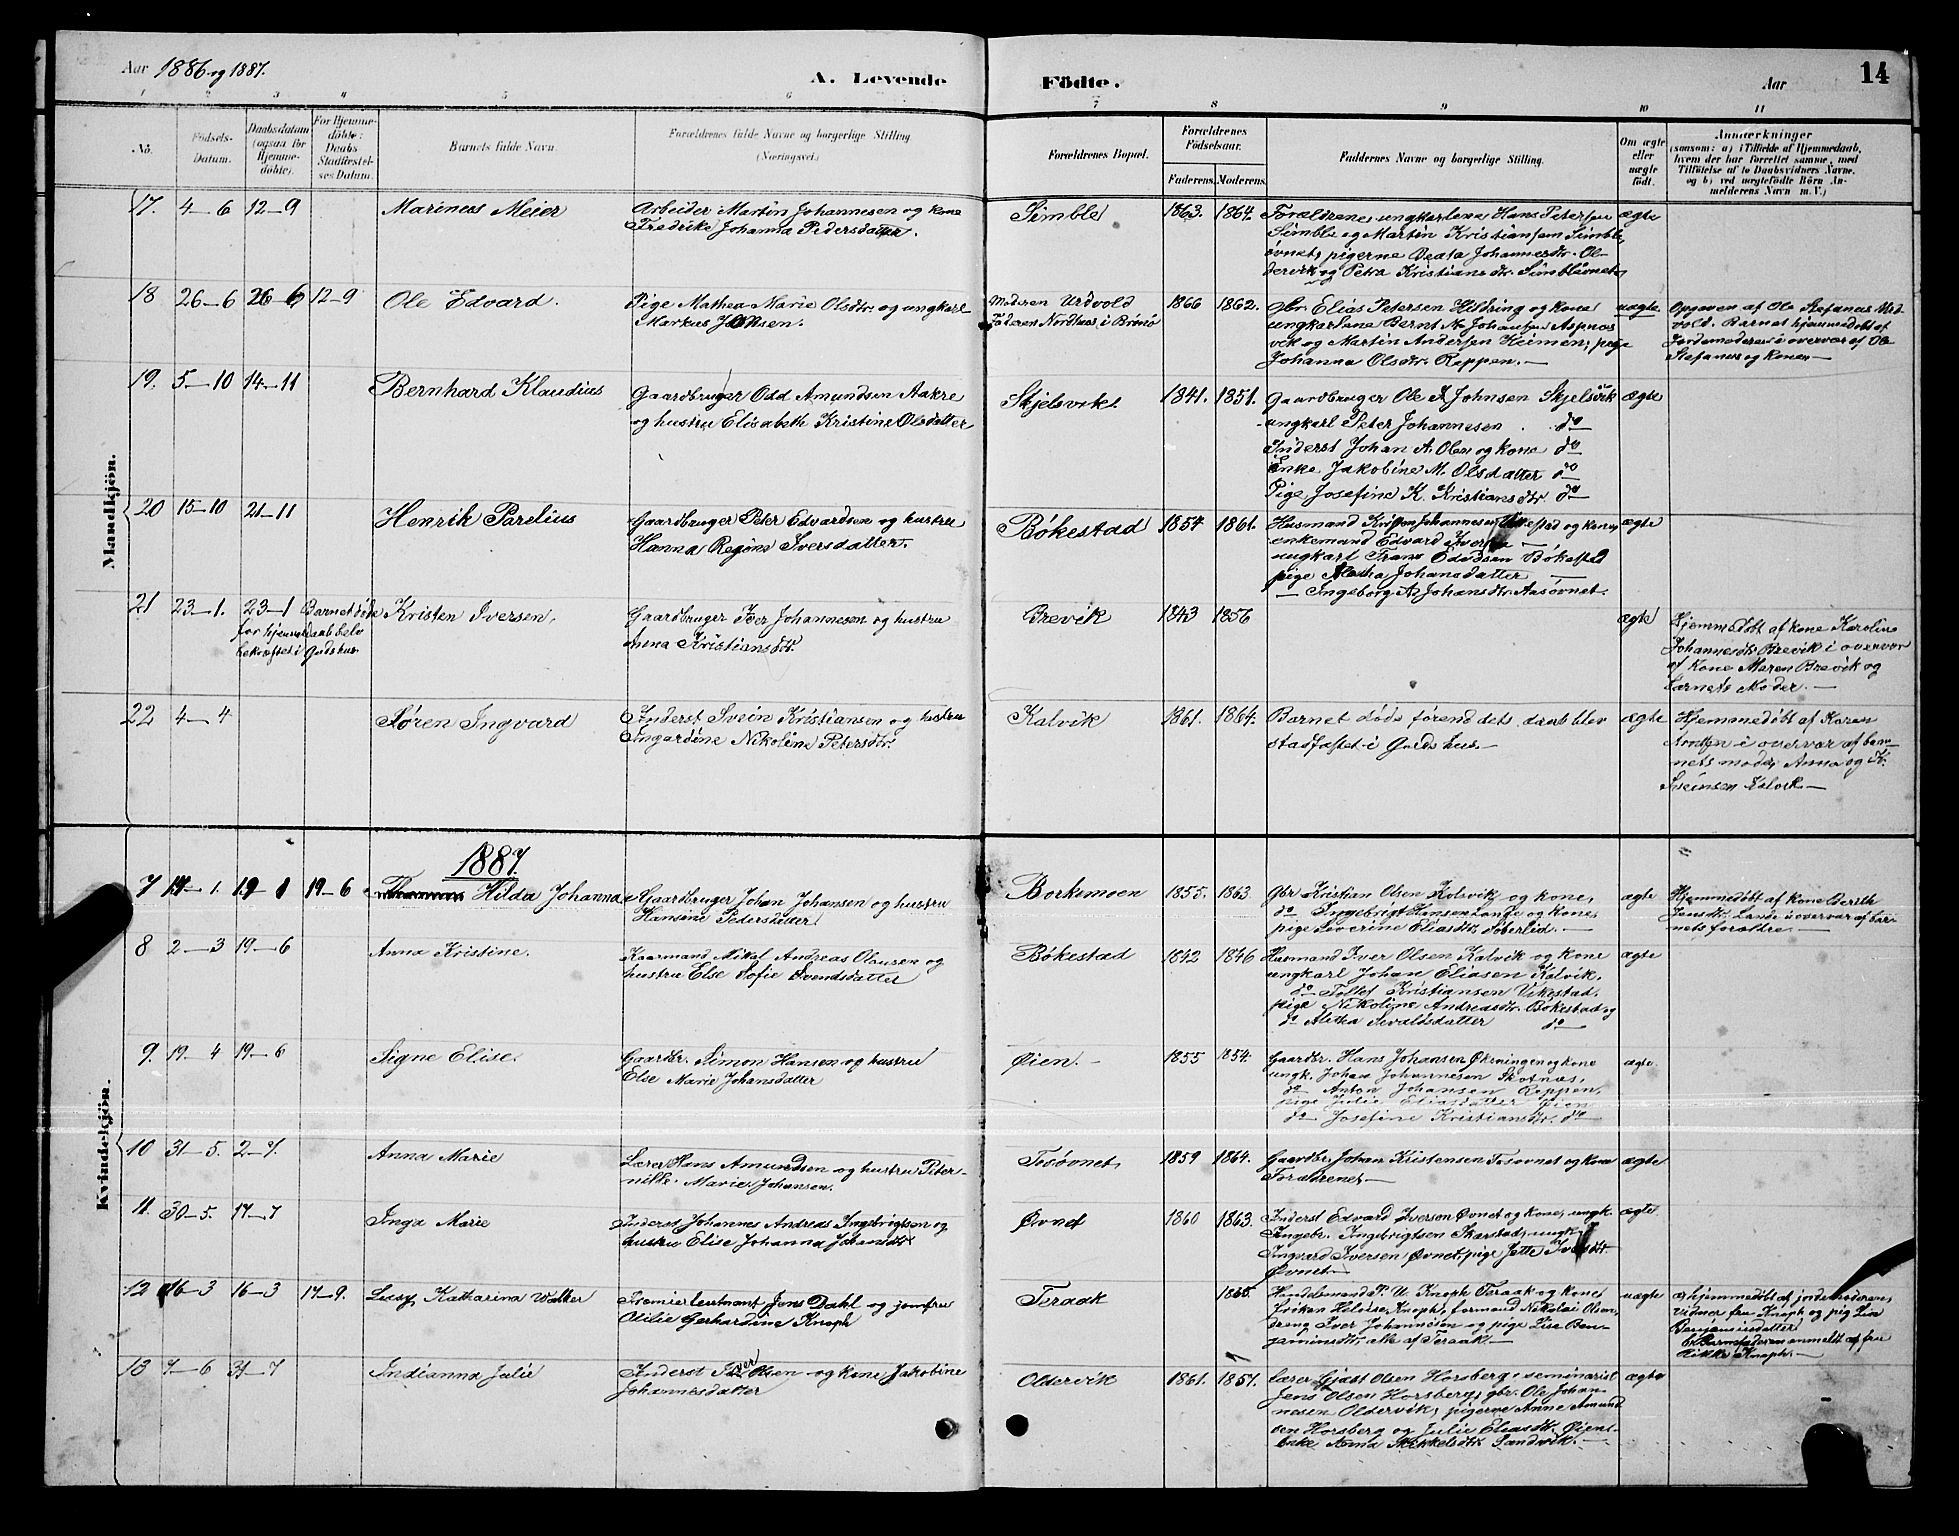 Aar 1886 og 1887.
A. Levende Födte.
Aar
14
1 2 3 4 5 6 7 8 9 10 11
No.
Födsels-Datum.
Daabsdatum (ogsaa for Hjemme-döbte).
For Hjemme-döbte: Daabs Stadfæstel-ses Datum.
Barnets fulde Navn.
Forældrenes fulde Navne og borgerlige Stilling (Næringsvei.)
Forældrenes Bopæl.
Forældrenes Födselsaar.
Faderens. Moderens.
Faddernes Navne og borgerlige Stilling.
Om ægte eller uægte födt.
Anmærkninger
(saasom: a) i Tilfælde af Hjemmedaab, hvem der har forrettet samme, med Tilföielse af to Daabsvidners Navne, og b) ved uægtefödte Börn An-melderens Navn m. V.)
Mandkjön.
17. 4–6 12–9 Marineas Meier
Arbeider Martin Johannesen og kone
Fredrike Johanna Pedersdatter.
Simble 1863. 1864.
Forældrene, ungkarlene Hans Petersen
Simble og Martin Kristiansen Simble,
övnet, pigerne Beata Johannesdtr. Ol-
dervik og Petra Kristiansdtr. Simblövnet
ægte
18 26–6 26–6 12–9 Ole Edvard.
Pige Mathea Marie Olsdtr. og ungkarl
Markus Johnsen.
Moderen Urdvold
Faderen Nordhus i Brönö
1866 1862.
Gbr. Elias Petersen Hildring og kone
ungkarlene Bernt N. Johansen Aspnes
vik og Martin Andersen Heimen, pige
Johanna Olsdtr. Reppen.—
uægte
Opgiven af Ole Stefanus Urd-
vold. Barnet hjemmedöbt af
Jordemoderen i overvær af Ole
Stefanus og kone.—
19. 5–10 14–11 Bernhard Klaudius
Gaardbruger Odd Amundsen Aakre
og hustru Elisabeth Kristine Olsdatter
Skjelsvik. 1841. 1851.
Gaardbruger Ole A Johnsen Skjelsvik
ungkarl Peter Johannesen do
Inderst Johan A. Olsen og kone do
Enke Jakobine M. Olsdatter do
Pige Josefine K. Kristiansdtr. do
ægte
20 15–10 21–11 Henrik Parelius
Gaardbruger Peter Edvardsen og hustru
Hanna Regine Iversdatter.
Bökestad 1854 1861.
Husmand Johannesen og kone,
enkemand Edvard Iversen
ungkarl Frans Edvdsen Bökestad
pige Aletha Johansdatter —
— Ingeborg A. Johansdtr. Aasövnet.
ægte
21 23–1. 23–1 Barnet döde
for hjemmedaab belv
bekræftet i Guds hus
Kristen Iversen,
Gaardbruger Iver Johannesen og hustru
Anna Kristiansdtr.
Brevik 1843 1856
ægte
Hjemmedöbt af kone Karoline
Johannesdtr. Brevik i overvær
af kone Maren Brevik og
Barnets Moder.—
22 4–4 Sören Ingvard
Inderst Svein Kristiansen og hustru
Ingardine Nikoline Petersdtr.
Kalvik 1861. 1864.
Barnet döde förend dets daab blev
stadfæstet i Guds hus.—
ægte
Hjemmedöbt af Karen
Arntsen i overvær af bar-
nets moder, Anna og K.
Sveinsen Kalvik.—
Kvindekjön.
1887
7 19–1. 19–1 19–6 Hilda Johanna
Gaardbruger Johan Johansen og hustru
Hansine Pedersdatter
Borkmoen 1855. 1863
Gbr Kristian Olsen Kalvik og kone,
do Ingebrigt Hansen Lande og kone,
pige Severine Eliasdtr. Soberlid.—
ægte
Hjemmedöbt af kone Berith
Jensdtr. Lande i overvær af bar-
nets forældre.—
8 2–3 19–6 Anna Kristine.
Kaarmand Mikal Andreas Olausen og
hustru Else Sofie Svendsdatter
Bökestad 1842 1846
Husmand Iver Olsen Kalvik og kone
ungkarl Johan Eliasen Kalvik,
do Tollef Kristiansen Vikestad,
pige Nikoline Andreasdtr. Bökestad og
do Aletha Sevaldsdatter do
ægte
9. 19–4 19–6 Signe Elise.
Gaardbr. Simon Hansen og hustru
Else Marie Johansdatter
Öien.— 1855 1854.
Gaardbr. Hans Johansen Økseningen og kone
ungk. Johan Johannesen Skotnes,
do Anton Johansen Reppen,
pige Julie Eliasdatter Öien
do Josefine Kristiansdtr. do
ægte.
10 31–5. 2–7. Anna Marie
Lærer Hans Amundsen og hustru Peter-
nille Marie Johansen.
Tosövnet, 1859 1864.
Gaardbr. Johan Kristensen Tosövnet og kone
Forældrene.—
ægte
11. 30–5. 17–7 Inga Marie
Inderst Johannes Andreas Ingebrigtsen og
hustru Elise Johanna Johansdtr
Övnet 1860 1863.
Inderst Edvard Iversen Övnet og kone, ungk.
Ingebr. Ingebrigtsen Skarstad, ungk.
Ingvard Iversen, Övnet, pige Jette Iversdtr
Övnet.—
ægte.
12 16–3 16–3 17–9. Lusy Katharina Walter
Premierleutnant Jens Dahl og jomfru
Otilie Gerhardine Knoph
Teraak 1865.
Handelsmand P. U. Knoph Teraak og kone,
fröken Helvise Knoph, formand Nikolai Olsen,
dreng Iver Johannesen og pige Lise Ben-
jaminsdtr. alle af Teraak.—
uægte
a hjemmedöbt af jordemoderen,
vidner fru Knoph og pig Lise
Benjaminsdatter
b Barnefaderen anmeldt af fru
Rikke Knoph.—
13 7–6 31–7 Indianna Julie
Inderst Iver Olsen og kone Jakobine
Johannesdatter
Oldervik 1861. 1857.
Lærer Ojast Olsen Horsberg, seminarist
Jens Olsen Horsberg, gbr. Ole Johan-
nesen Oldervik, pigerne Anne Amund
sen Horsberg og Julie Eliasdtr. Öien,
Enke Anna Mikkelsdtr Sandvik.—
ægte